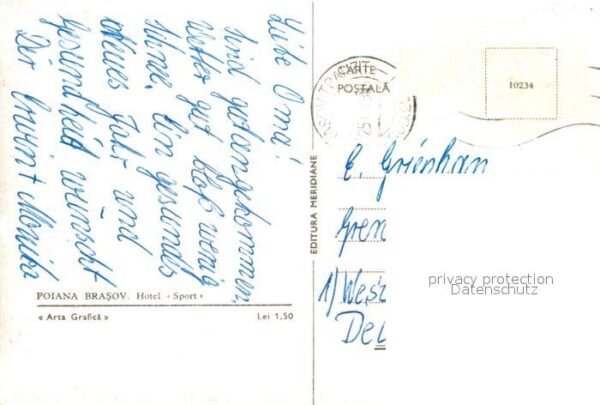 Liebe Oma!
Sind gut angekommen,
Wetter gut bloß wenig
Schnee. Ein gesundes
neues Jahr und
Gesundheit wünscht
Dir Erwin + Monika
POIANA BRAȘOV. Hotel «Sport»
« Arta Grafică »
Lei 1,50
EDITURA MERIDIANE
CARTE
POȘTALĂ
10234
E. Grienhan
Gren
1/West
Deu
privacy protection
Datenschutz